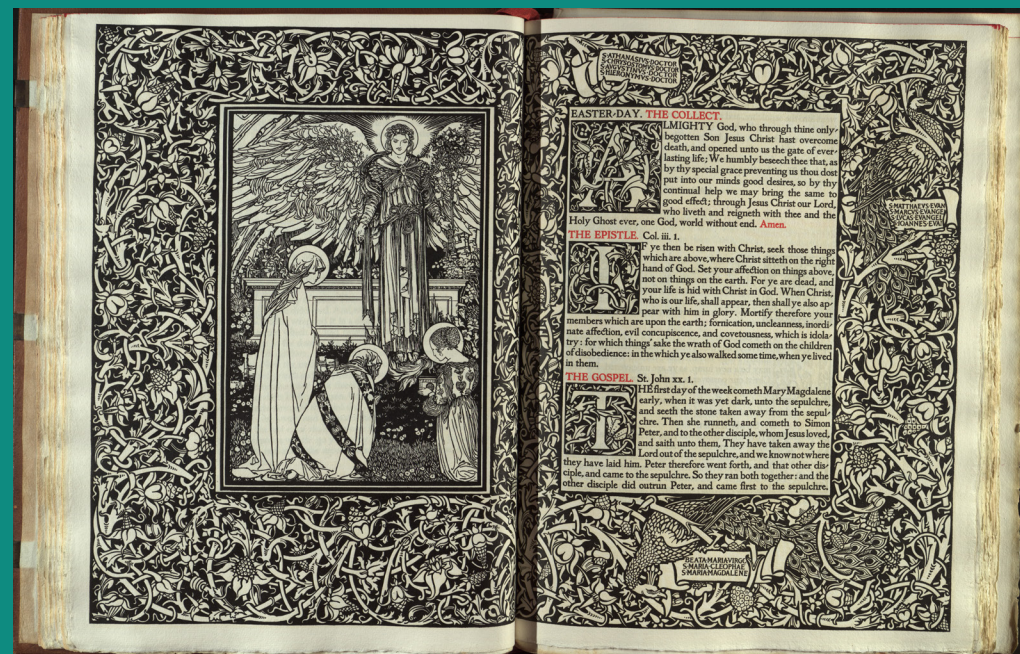 S·ATHANASIVS·DOCTOR
S·CHRYSOSTOMVS·DOCTOR
S·AVGVSTINVS·DOCTOR
S·HIERONYMVS·DOCTOR
EASTER-DAY. THE COLLECT.
ALMIGHTY God, who through thine only-
begotten Son Jesus Christ hast overcome
death, and opened unto us the gate of ever-
lasting life; We humbly beseech thee that, as
by thy special grace preventing us thou dost
put into our minds good desires, so by thy
continual help we may bring the same to
good effect; through Jesus Christ our Lord,
who liveth and reigneth with thee and the
Holy Ghost ever, one God, world without end. Amen.
THE EPISTLE. Col. iii. 1.
IF ye then be risen with Christ, seek those things
which are above, where Christ sitteth on the right
hand of God. Set your affection on things above,
not on things on the earth. For ye are dead, and
your life is hid with Christ in God. When Christ,
who is our life, shall appear, then shall ye also ap-
pear with him in glory. Mortify therefore your
members which are upon the earth; fornication, uncleanness, inordi-
nate affection, evil concupiscence, and covetousness, which is idola-
try: for which things' sake the wrath of God cometh on the children
of disobedience: in the which ye also walked some time, when ye lived
in them.
THE GOSPEL. St. John xx. 1.
THE first day of the week cometh Mary Magdalene
early, when it was yet dark, unto the sepulchre,
and seeth the stone taken away from the sepul-
chre. Then she runneth, and cometh to Simon
Peter, and to the other disciple, whom Jesus loved,
and saith unto them, They have taken away the
Lord out of the sepulchre, and we know not where
they have laid him. Peter therefore went forth, and that other dis-
ciple, and came to the sepulchre. So they ran both together: and the
other disciple did outrun Peter, and came first to the sepulchre.
S·MATTHAEVS·EVAN
S·MARCVS·EVANGE
S·LVCAS·EVANGEL
S·IOANNES·EVA
BEATA·MARIA·VIRGO
S·MARIA·CLEOPHAE
S·MARIA·MAGDALENE